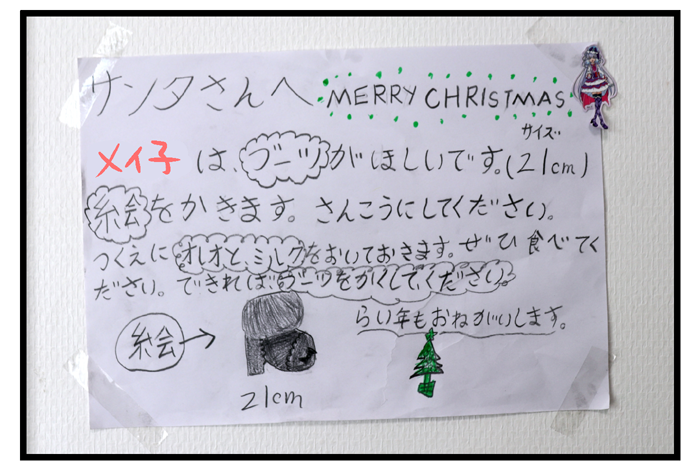 サンタさんへ MERRY CHRISTMAS
サイズ
メイ子は、ブーツがほしいです。(21cm)
絵をかきます。さんこうにしてください。
つくえにオレオと、ミルクをおいておきます。ぜひ食べてく
ださい。できれば、ブーツをかくしてください。
らい年もおねがいします。
絵→
21cm